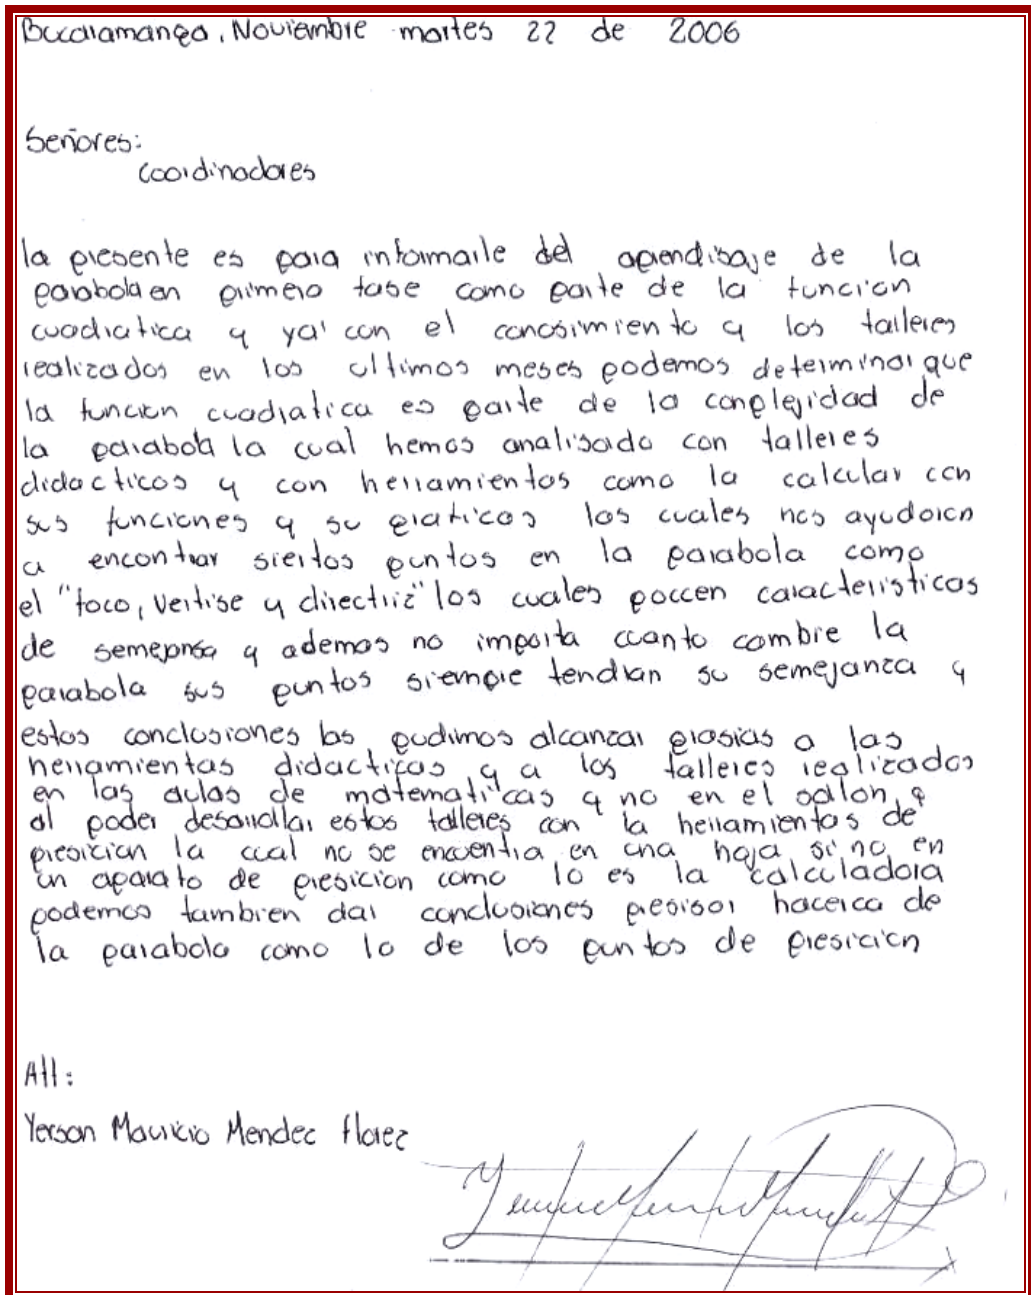 Bucaramanga, Noviembre martes 22 de 2006
Señores:
Coordinadores
la presente es para informarle del aprendisaje de la
parabola en primera fase como parte de la funcion
cuadratica y ya con el conosimiento y los talleres
realizados en los ultimos meses podemos determinar que
la funcion cuadratica es parte de la conplejidad de
la parabola la cual hemos analisado con talleres
didacticos y con herramientas como la calcular con
sus funciones y su graficas las cuales nos ayudaron
a encontrar siertos puntos en la parabola como
el "foco, vertise y directriz" los cuales poccen caracteristicas
de y ademas no importa cuanto cambre la
parabola sus puntos siempre tendran su semejanza y
estas conclusiones las pudimos alcanzar grasias a las
herramientas didacticas y a los talleres realizados
en las aulas de matematicas y no en el salon, y
al poder desarrollar estos talleres con la herramientas de
presicion la cual no se encuentra en una hoja si no en
un aparato de presicion como lo es la calculadora
podemos tambien dar conclusiones presisar hacerca de
la parabola como lo de los puntos de presicion
Att:
Yerson Mauricio Mendez florez